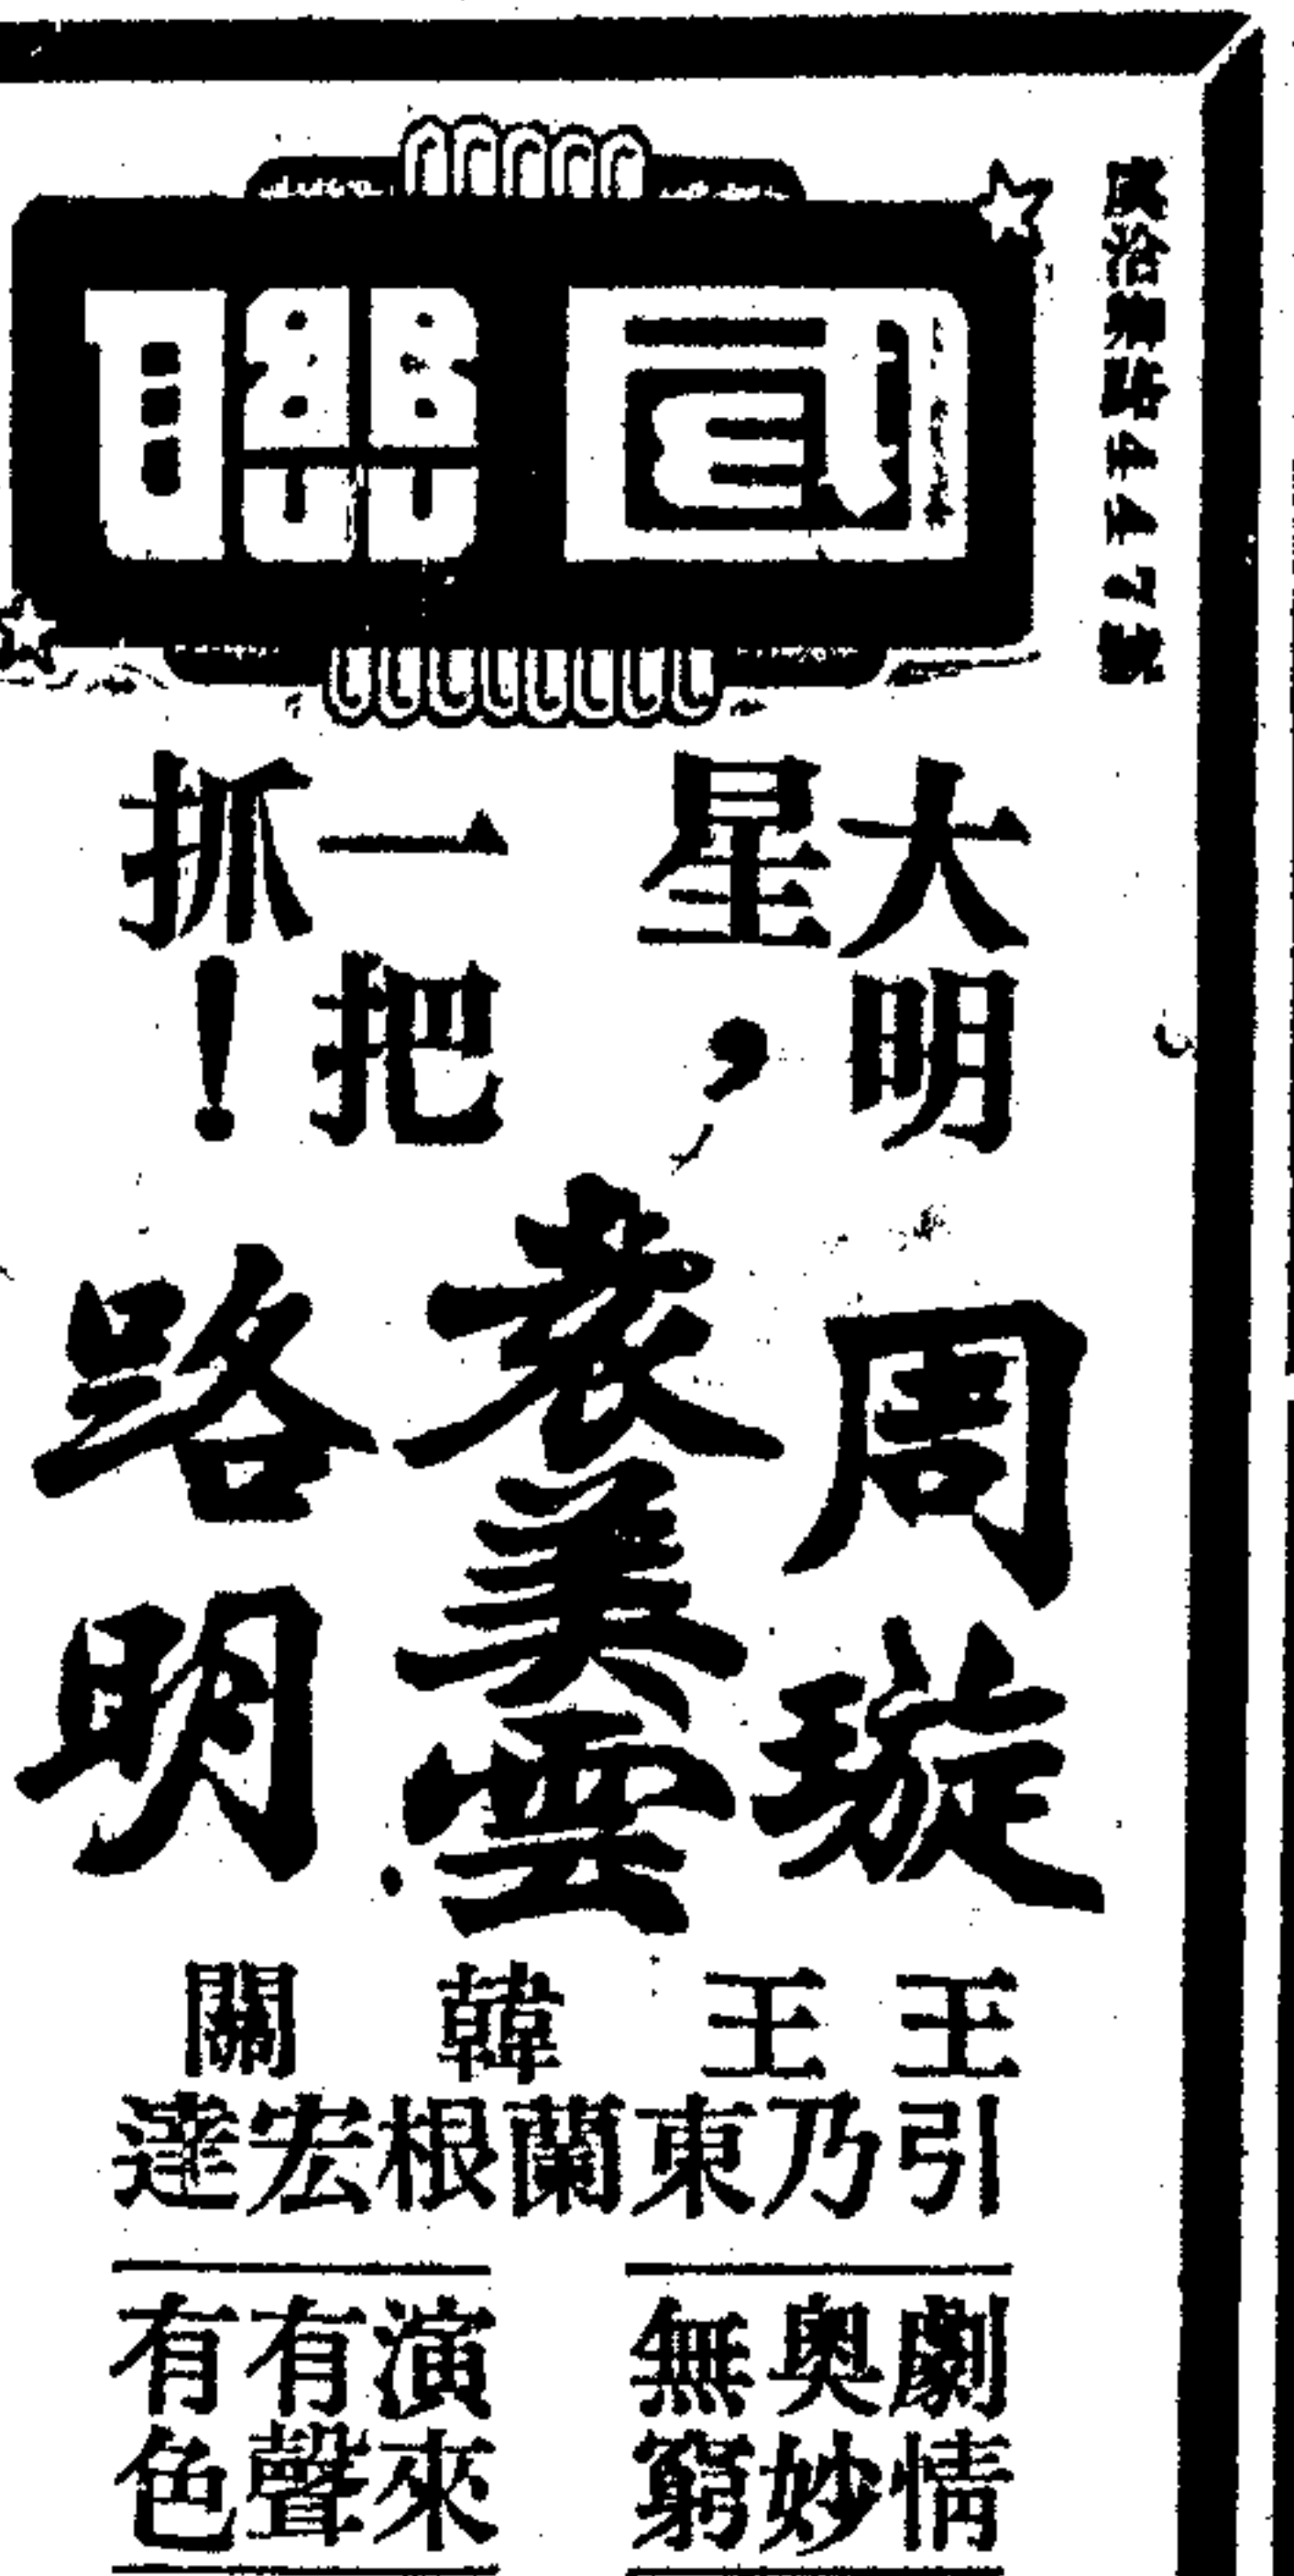 國聯
大明
星，
一把
抓！
周璇
袁美雲
路明
王引
王乃東
韓蘭根
關宏達
劇情
奧妙
無窮
演來
有聲
有色